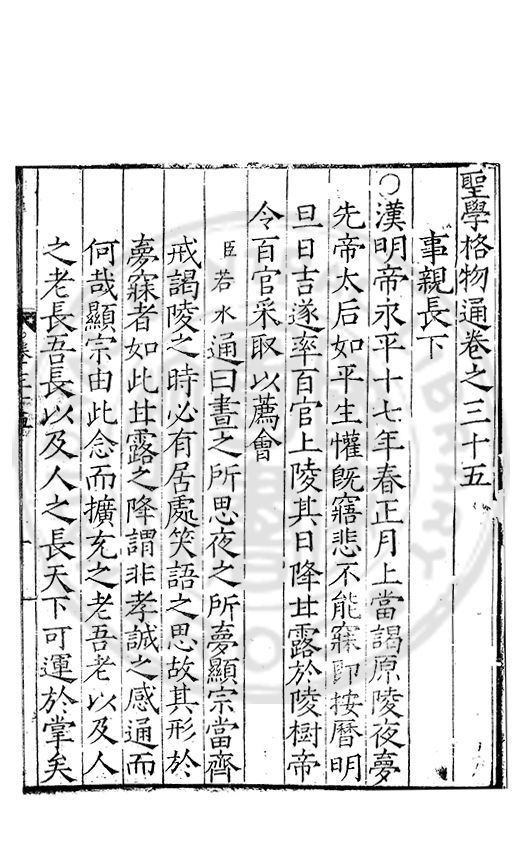 聖學格物通卷之三十五
事親長下
○漢明帝永平十七年春正月上當謁原陵夜夢
先帝太后如平生懽旣寤悲不能寐即按曆明
旦日吉遂率百官上陵其日降甘露於陵樹帝
令百官采取以薦會
臣若水通曰晝之所思夜之所夢顯宗當齊
戒謁陵之時必有居處笑語之思故其形於
夢寐者如此甘露之降謂非孝誠之感通而
何哉顯宗由此念而擴充之老吾老以及人
之老長吾長以及人之長天下可運於掌矣